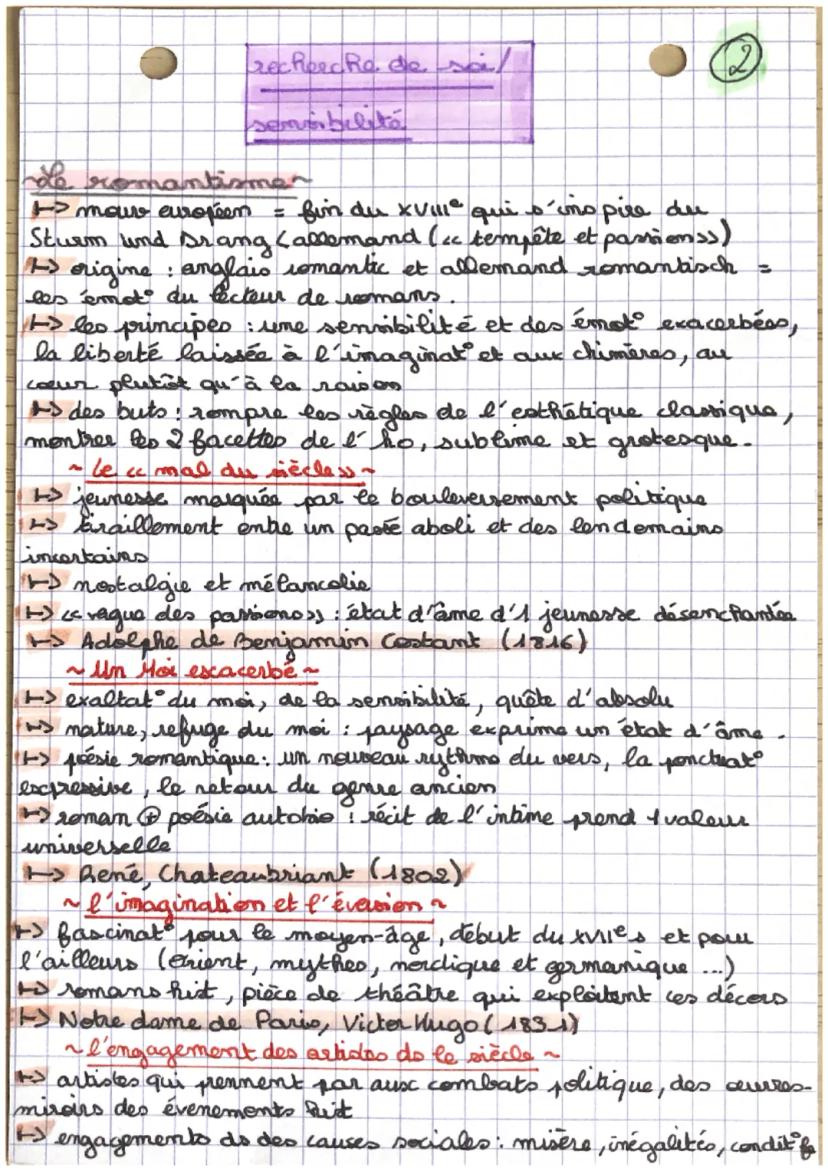 recherche de soi/
2
sensibilité
~Le romantisme~
↦ mouv européen = fin du XVIIIe qui s'inspire du
Sturm und Drang (allemand (<< tempête et passion>>)
↦ origine : anglais romantic et allemand romantisch =
les émot° du lecteur de romans.
↦ les principes : une sensibilité et des émot° exacerbées,
la liberté laissée à l'imaginat° et aux chimères, au
cœur plutôt qu'à la raison
↦ des buts : rompre les règles de l'esthétique classique,
montrer les 2 facettes de l'ho, sublime et grotesque.
~ Le << mal du siècle>> ~
↦ jeunesse marquée par le bouleversement politique
↦ tiraillement entre un passé aboli et des lendemains
incertains
↦ nostalgie et mélancolie
↦ << vague des passions>> : état d'âme d'1 jeunesse désenchantée
↦ Adolphe de Benjamin Costant (1816)
~ Un Moi escacerbé ~
↦ exaltat° du moi, de la sensibilité, quête d'absolu
↦ nature, refuge du moi : paysage exprime un état d'âme.
↦ poésie romantique : un nouveau rythme du vers, la ponctuat°
expressive, le retour du genre ancien
↦ roman ⊕ poésie autobio : récit de l'intime prend 1 valeur
universelle
↦ René, Chateaubriant (1802)
~ l'imagination et l'évasion ~
↦ fascinat° pour le moyen-âge, début du XVIIe s et pour
l'ailleurs (Orient, mythes, nordique et germanique ...)
↦ romans hist, pièce de théâtre qui exploitent ces décors
↦ Notre dame de Paris, Victor Hugo (1831)
~ l'engagement des artistes ds le siècle ~
↦ artistes qui prennent par aux combats politique, des œuvres-
miroirs des évenements hist
↦ engagements ds des causes sociales : misère, inégalités, condit°